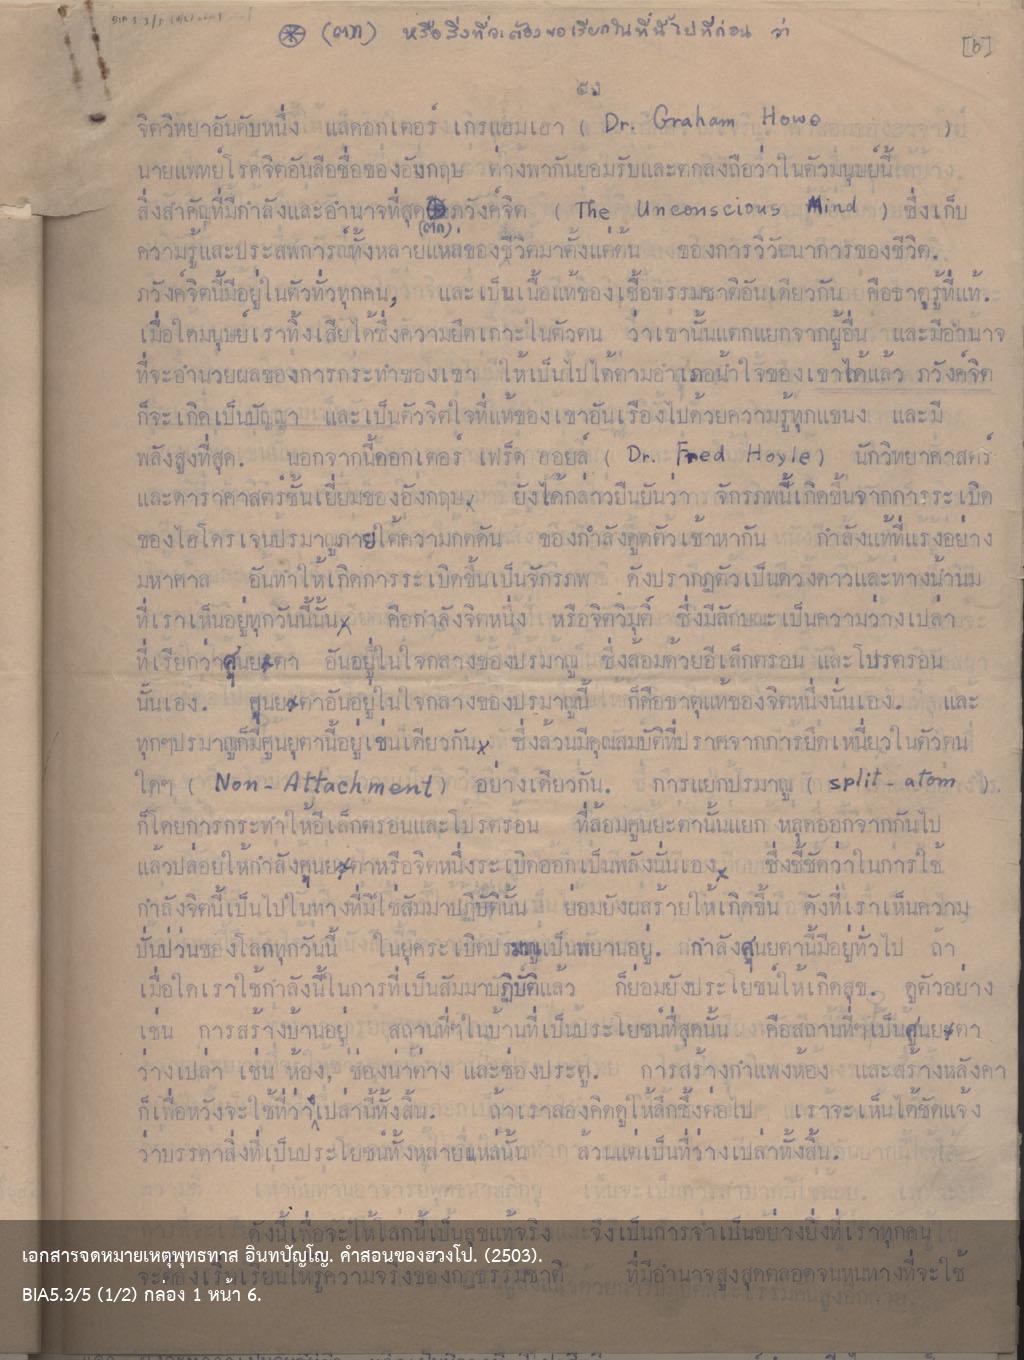 (ตก) หรือสิ่งที่จะต้องขอเรียกในที่นี้ไปทีก่อน ว่า
[๖]
จิตวิทยาอันดับหนึ่ง และดอกเตอร์ เกรแฮมเฮา ( Dr. Graham Howe )
นายแพทย์โรคจิตอันลือชื่อของอังกฤษ ต่างพากันยอมรับและตกลงถือว่าในตัวมนุษย์นี้
สิ่งสำคัญที่มีกำลังและอำนาจที่สุด ภวังค์จิต ( The Unconscious Mind ) ซึ่งเก็บ
(ตก)
ความรู้และประสพการณ์ทั้งหลายแหล่ของชีวิตมาตั้งแต่ต้น ของการวิวัฒนาการของชีวิต.
ภวังค์จิตนี้มีอยู่ในตัวทั่วทุกคน, และเป็นเนื้อแท้ของเชื้อธรรมชาติอันเดียวกัน คือธาตุรู้ที่แท้.
เมื่อใดมนุษย์เราทิ้งเสียได้ซึ่งความยึดเกาะในตัวตน ว่าเขานั้นแตกแยกจากผู้อื่น และมีอำนาจ
ที่จะอำนวยผลของการกระทำของเขา ให้เป็นไปได้ตามอำเภอน้ำใจของเขาได้แล้ว ภวังค์จิต
ก็จะเกิดเป็นปัญญา และเป็นตัวจิตใจที่แท้ของเขาอันเรืองไปด้วยความรู้ทุกแขนง และมี
พลังสูงที่สุด. นอกจากนี้ดอกเตอร์ เฟร็ด ฮอยล์ ( Dr. Fred Hoyle ) นักวิทยาศาสตร์
และดาราศาสตร์ชั้นเยี่ยมของอังกฤษ ยังได้กล่าวยืนยันว่า จักรภพนี้เกิดขึ้นจากการระเบิด
ของไฮโดรเจนปรมาณูภายใต้ความกดดัน ของกำลังดูดตัวเข้าหากัน กำลังแท้ที่แรงอย่าง
มหาศาล อันทำให้เกิดการระเบิดขึ้นเป็นจักรภพ ดังปรากฏตัวเป็นดวงดาวและทางน้ำนม
ที่เราเห็นอยู่ทุกวันนี้นั้น คือกำลังจิตหนึ่ง หรือจิตวิมุติ์ ซึ่งมีลักษณะเป็นความว่างเปล่า
ที่เรียกว่าศูนยตา อันอยู่ในใจกลางของปรมาณู ซึ่งล้อมด้วยอีเล็กตรอน และโปรตรอน
นั้นเอง. ศูนยตาอันอยู่ในใจกลางของปรมาณูนี้ ก็คือธาตุแท้ของจิตหนึ่งนั่นเอง. และ
ทุกๆปรมาณูก็มีศูนยตานี้อยู่เช่นเดียวกัน ซึ่งล้วนมีคุณสมบัติที่ปราศจากการยึดเหนี่ยวในตัวตน
ใดๆ ( Non-Attachment) อย่างเดียวกัน. การแยกปรมาณู ( split-atom ).
ก็โดยการกระทำให้อีเล็กตรอนและโปรตรอน ที่ล้อมศูนยะตานั้นแยก หลุดออกจากกันไป
แล้วปล่อยให้กำลังศูนยตาหรือจิตหนึ่งระเบิดออกเป็นพลังนั่นเอง ซึ่งชี้ชัดว่าในการใช้
กำลังจิตนี้เป็นไปในทางที่มิใช่สัมมาปฏิบัตินั้น ย่อมยังผลร้ายให้เกิดขึ้น ดังที่เราเห็นความ
ปั่นป่วนของโลกทุกวันนี้ ในยุคระเบิดปรมาณูเป็นพยานอยู่. กำลังศูนยตานี้มีอยู่ทั่วไป ถ้า
เมื่อใดเราใช้กำลังนี้ในการที่เป็นสัมมาปฏิบัติแล้ว ก็ย่อมยังประโยชน์ให้เกิดสุข. ดูตัวอย่าง
เช่น การสร้างบ้านอยู่ สถานที่ๆในบ้านที่เป็นประโยชน์ที่สุดนั้น คือสถานที่ๆเป็นศูนยตา
ว่างเปล่า เช่น ห้อง, ช่องน่าต่าง และช่องประตู. การสร้างกำแพงห้อง และสร้างหลังคา
ก็เพื่อหวังจะใช้ที่ว่างเปล่านี้ทั้งสิ้น. ถ้าเราลองคิดดูให้ลึกซึ้งต่อไป เราจะเห็นได้ชัดแจ้ง
ว่าบรรดาสิ่งที่เป็นประโยชน์ทั้งหลายแหล่นั้น ล้วนแต่เป็นที่ว่างเปล่าทั้งสิ้น.
ดังนี้เพื่อจะให้โลกนี้เป็นสุขแท้จริง จึงเป็นการจำเป็นอย่างยิ่งที่เราทุกคน
จะต้องเรียนให้รู้ความจริงของกฎธรรมชาติ ที่มีอำนาจสูงสุดตลอดจนหนทางที่จะใช้
เอกสารจดหมายเหตุพุทธทาส อินทปัญโญ. คำสอนของฮวงโป. (2503).
BIA5.3/5 (1/2) กล่อง 1 หน้า 6.